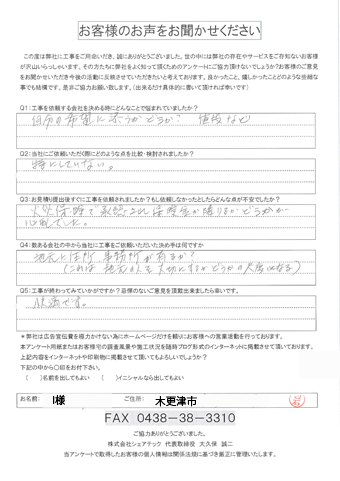 お客様のお声をお聞かせください
この度は弊社に工事をご用命いただき、誠にありがとうございました。世の中には弊社の存在やサービスをご存知ないお客様
が沢山いらっしゃいます。その方たちに弊社をよく知って頂くためのアンケートにご協力頂けないでしょうか?お客様のご意見
をお聞かせいただき今後の活動に反映させていただきたいと考えております。良かったこと、嬉しかったことどのような些細な
事でも結構です。是非ご協力お願い致します。(出来るだけ具体的に書いて頂ければ幸いです)
Q1:工事を依頼する会社を決める時にどんなことで悩まれていましたか?
自分の希望に添うかどうか? 値段など
Q2:当社にご依頼いただく際にどのような点を比較・検討されましたか?
特にしていない。
Q3:お見積り提出後すぐに工事を依頼されましたか?もし依頼しなかったとしたらどんな点が不安でしたか?
火災保険で承認され保険金が降りるかどうかが
心配でした。
Q4:数ある会社の中から当社に工事をご依頼いただいた決め手は何ですか
地元に住所 事務所が有るか?
(これは 地元の人を大切にするかどうかの尺度になる)
Q5:工事が終わってみていかがですか?忌憚のないご意見を頂戴出来ましたら幸いです。
快適です。
*弊社は広告宣伝費を極力かけない為にホームページだけを頼りにお客様への営業活動を行っております。
本アンケート用紙またはお客様宅の調査風景や施工状況を随時ブログ形式のインターネットに掲載させて頂いております。
上記内容をインターネットや印刷物に掲載させて頂いてもよろしいでしょうか?
下記の中から〇印をお付下さい。
( )名前を出してもよい ( )イニシャルなら出してもよい
お名前: I様 ご住所: 木更津市
FAX 0438-38-3310
ご協力ありがとうございました。
株式会社シェアテック 代表取締役 大久保 誠二
当アンケートで取得したお客様の個人情報は関係法規に基づき厳正に管理いたします。